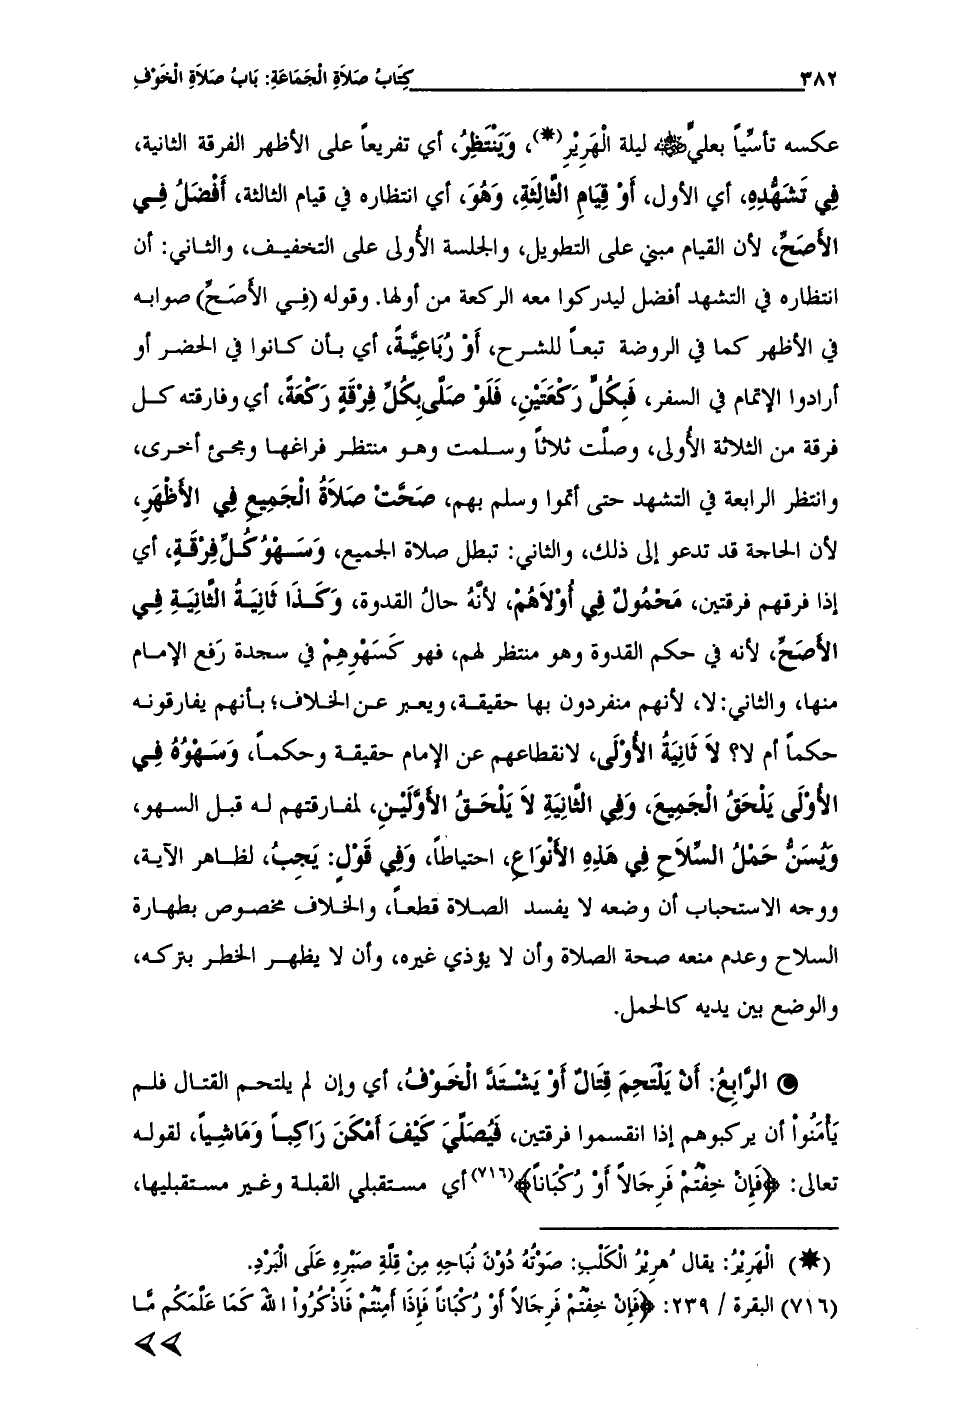 ٣٨٢ كِتَابُ صَلاَةِ الْجَمَاعَةِ: بَابُ صَلاَةِ الْخَوْفِ
عكسه تأسِّياً بعليٍّ ﷺ ليلة الْهَرِيْرِ(*)، وَيَنْتَظِرُ، أي تفريعاً على الأظهر الفرقة الثانية،
فِي تَشَهُّدِهِ، أي الأول، أَوْ قِيَامِ الثَّالِثَةِ، وَهُوَ، أي انتظاره في قيام الثالثة، أَفْضَلُ فِي
الأَصَحِّ، لأن القيام مبني على التطويل، والجلسة الأُولى على التخفيف، والثاني: أن
انتظاره في التشهد أفضل ليدركوا معه الركعة من أولها. وقوله (فِي الأَصَحِّ) صوابه
في الأظهر كما في الروضة تبعاً للشرح، أَوْ رُبَاعِيَّةً، أي بأن كانوا في الحضر أو
أرادوا الإتمام في السفر، فَبِكُلٍّ رَكْعَتَيْنِ، فَلَوْ صَلَّى بِكُلِّ فِرْقَةٍ رَكْعَةً، أي وفارقته كل
فرقة من الثلاثة الأُولى، وصلَّت ثلاثاً وسلمت وهو منتظر فراغها ومجئ أخرى،
وانتظر الرابعة في التشهد حتى أتموا وسلم بهم، صَحَّتْ صَلاَةُ الْجَمِيعِ فِي الأَظْهَرِ،
لأن الحاجة قد تدعو إلى ذلك، والثاني: تبطل صلاة الجميع، وَسَهْوُ كُلِّ فِرْقَةٍ، أي
إذا فرقهم فرقتين، مَحْمُولٌ فِي أُوْلاَهُمْ، لأنَّهُ حالُ القدوة، وَكَذَا ثَانِيَةُ الثَّانِيَةِ فِي
الأَصَحِّ، لأنه في حكم القدوة وهو منتظر لهم، فهو كَسَهْوِهِمْ في سجدة رَفع الإمام
منها، والثاني: لا، لأنهم منفردون بها حقيقة، ويعبر عن الخلاف؛ بأنهم يفارقونه
حكماً أم لا؟ لاَ ثَانِيَةُ الأُوْلَى، لانقطاعهم عن الإمام حقيقة وحكماً، وَسَهْوُهُ فِي
الأُوْلَى يَلْحَقُ الْجَمِيعَ، وَفِي الثَّانِيَةِ لاَ يَلْحَقُ الأَوَّلَيْنِ، لمفارقتهم له قبل السهو،
وَيُسَنُّ حَمْلُ السِّلاَحِ فِي هَذِهِ الأَنْوَاعِ، احتياطاً، وَفِي قَوْلٍ: يَجِبُ، لظاهر الآية،
ووجه الاستحباب أن وضعه لا يفسد الصلاة قطعاً، والخلاف مخصوص بطهارة
السلاح وعدم منعه صحة الصلاة وأن لا يؤذي غيره، وأن لا يظهر الخطر بتركه،
والوضع بين يديه كالحمل.
الرَّابِعُ: أَنْ يَلْتَحِمَ قِتَالٌ أَوْ يَشْتَدَّ الْخَوْفُ، أي وإن لم يلتحم القتال فلم
يَأْمَنُواْ أن يركبوهم إذا انقسموا فرقتين، فَيُصَلِّيَ كَيْفَ أَمْكَنَ رَاكِباً وَمَاشِياً، لقوله
تعالى: ﴿فَإِنْ خِفْتُمْ فَرِجَالاً أَوْ رُكْبَاناً﴾(٧١٦) أي مستقبلي القبلة وغير مستقبليها،
(*) الْهَرِيْرُ: يقال هَرِيْرُ الْكَلْبِ: صَوْتُهُ دُوْنَ نُبَاحِهِ مِنْ قِلَّةِ صَبْرِهِ عَلَى الْبَرْدِ.
(٧١٦) البقرة / ٢٣٩: ﴿فَإِنْ خِفْتُمْ فَرِجَالاً أَوْ رُكْبَاناً فَإِذَا أَمِنْتُمْ فَاذْكُرُواْ اللهَ كَمَا عَلَّمَكُم مَّا